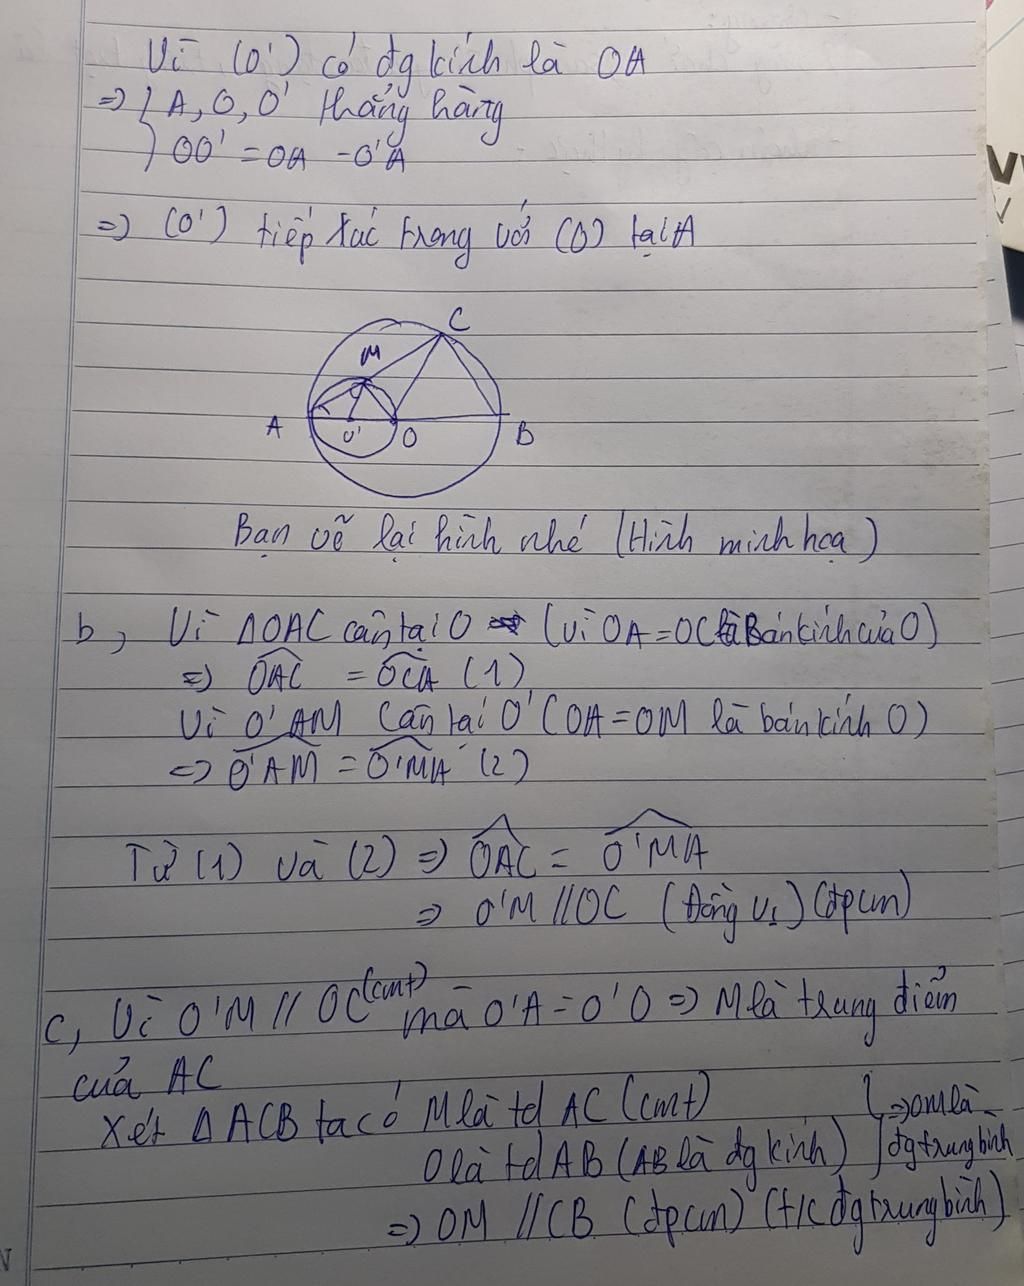 Vì (O') có đg kính là OA
=> { A, O, O' thẳng hàng
OO' = OA - O'A
=> (O') tiếp xúc trong với (O) tại A
C
M
A
O'
O
B
Bạn vẽ lại hình nhé (Hình minh họa)
b, Vì ΔOAC cân tại O (vì OA = OC là Bán kính của O)
=> OAC = OCA (1)
Vì O'AM cân tại O' (OA = OM là bán kính O)
=> O'AM = O'MA (2)
Từ (1) và (2) => OAC = O'MA
=> O'M // OC (Đồng vị) (đpcm)
c, Vì O'M // OC (cmt) mà O'A = O'O => M là trung điểm
của AC
Xét Δ ACB ta có M là td AC (cmt)
O là td AB (AB là đg kính) } => OM là
đg trung bình
=> OM // CB (đpcm) (t/c đg trung bình)